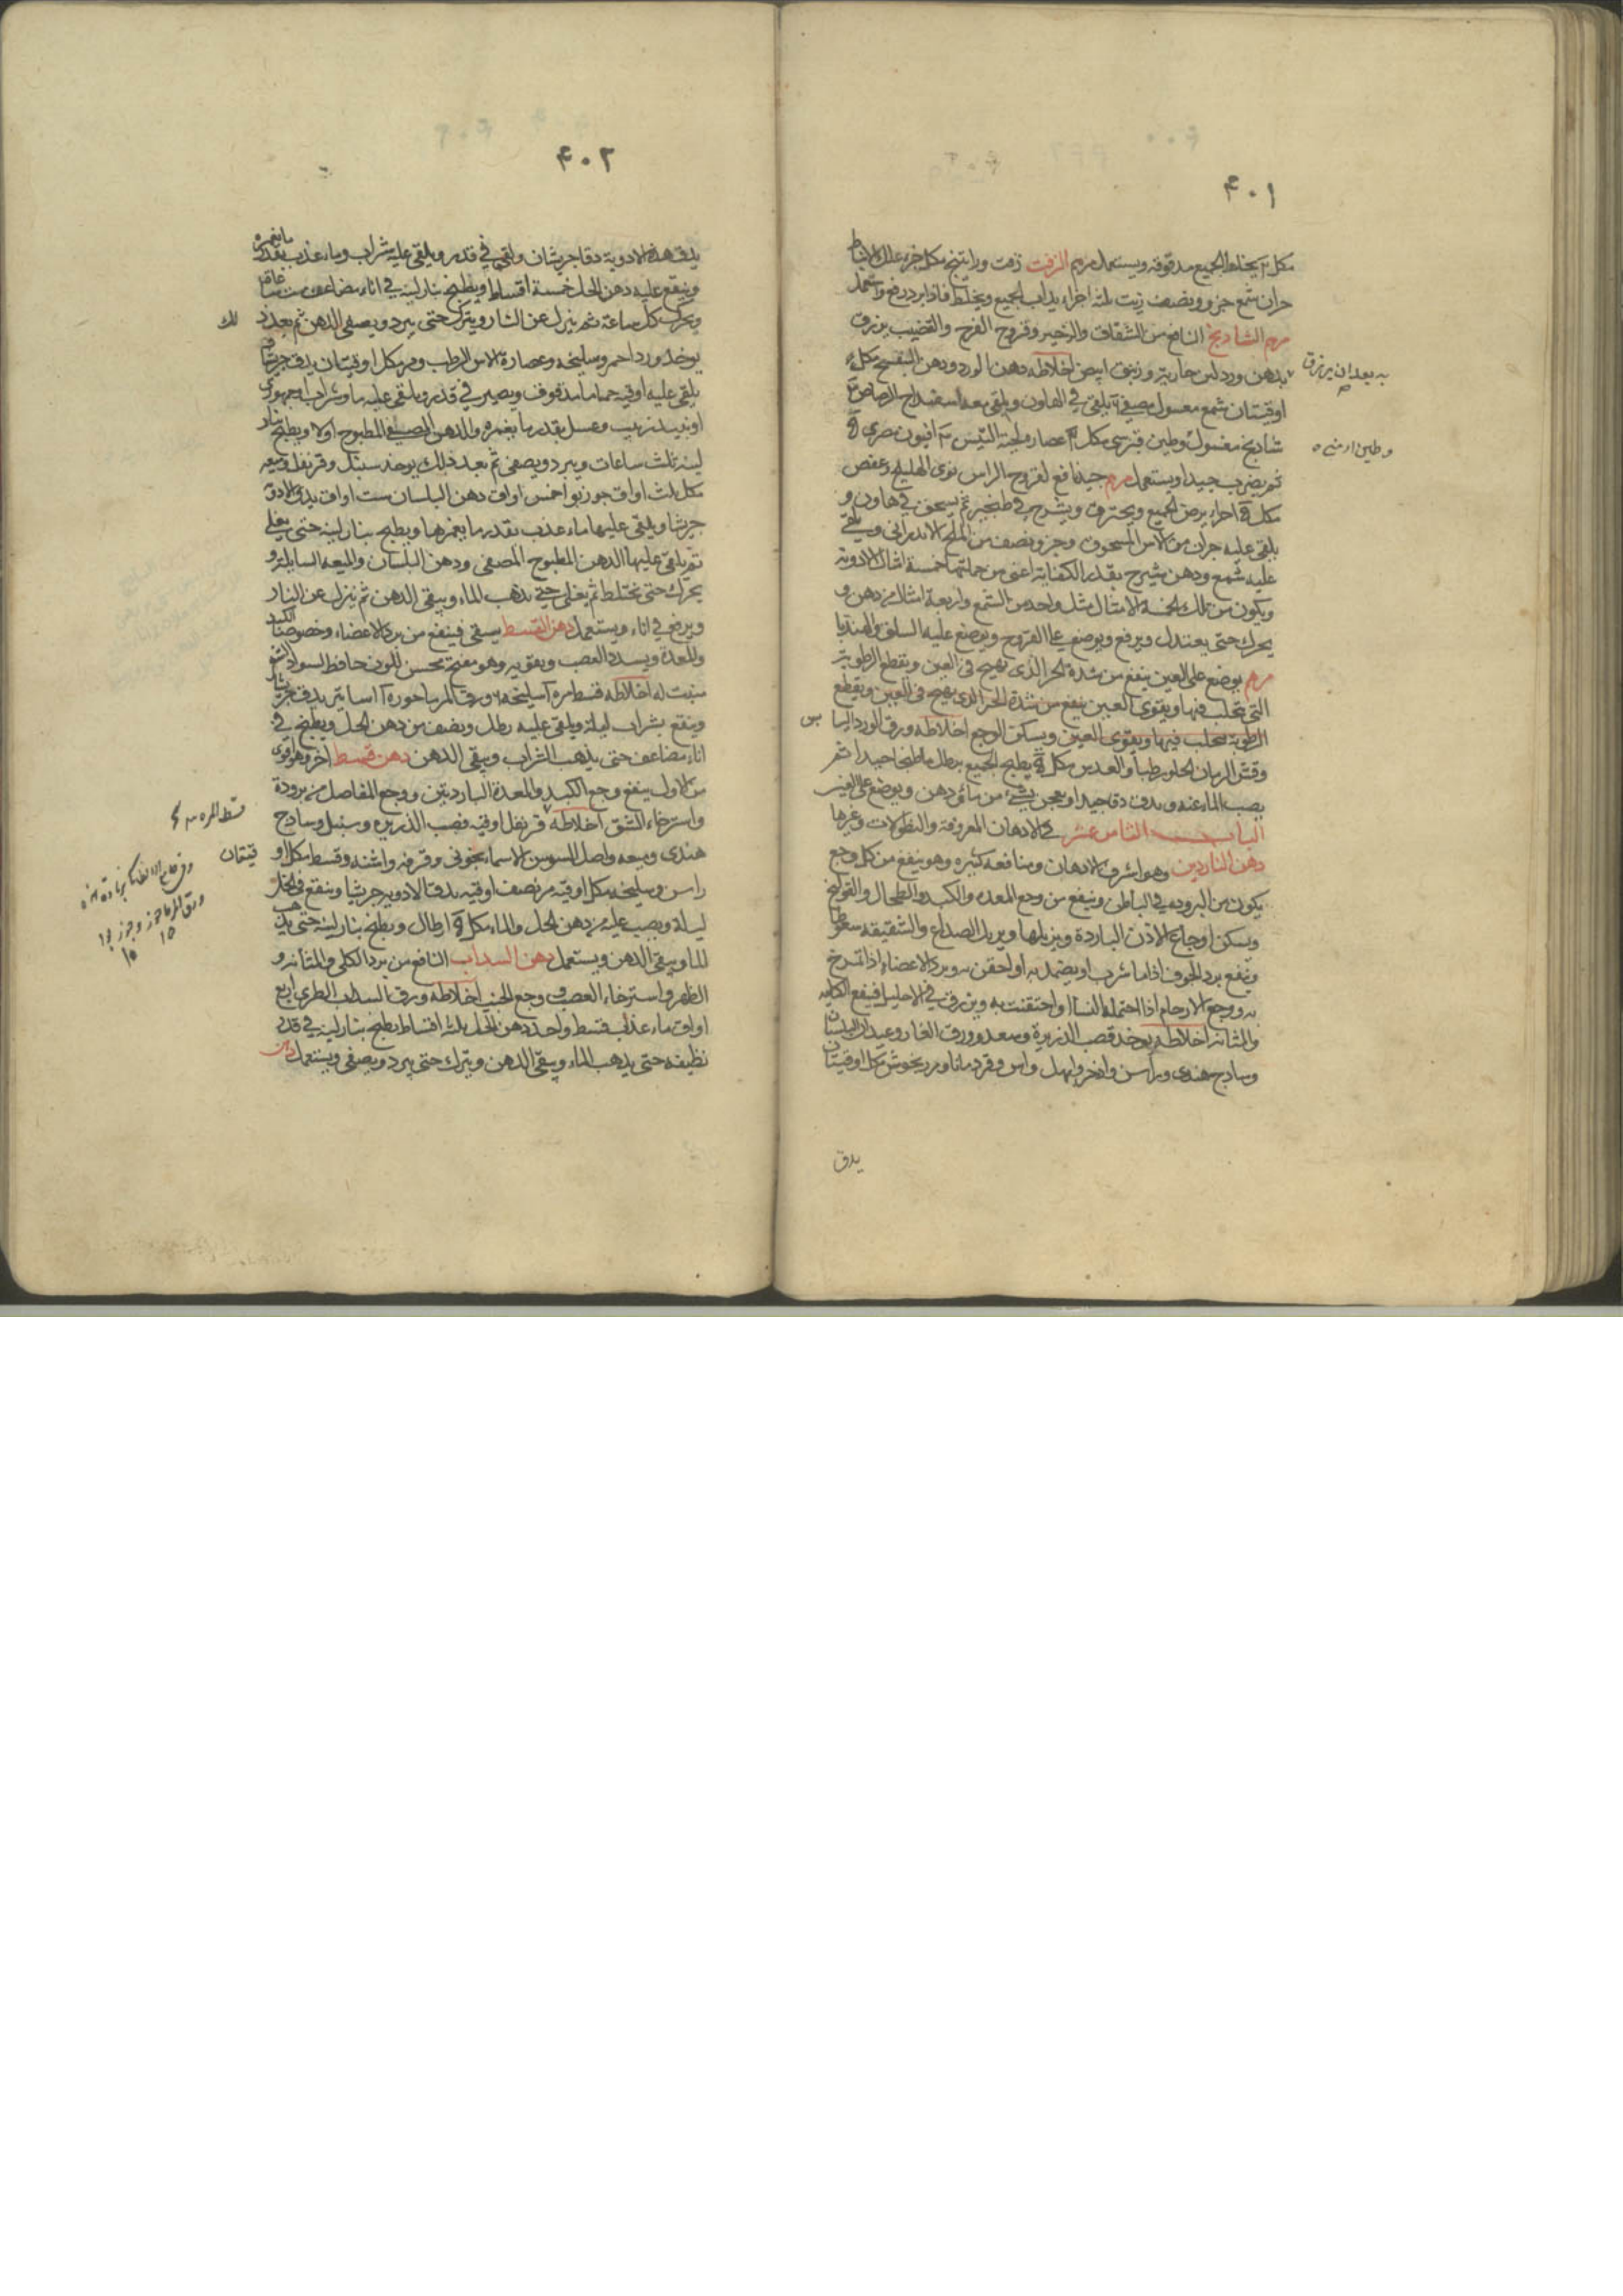 ۴۰۱
يخلط الجميع مدقوقه ويستعمل مرهم الزفت زفت وراتينج مكل جزء علك الانباط
شمع جزو ونصف زيت ثلثه اجزاء يذاب الجميع ويخلط فاذا برد رفع واستعمل
مرهم الشادنج النافع من الشقاق والزحير وقروح الفرج والقضيب
بدهن ورد لبن جارية وزيبق ابيض اخلاطه دهن الورد ودهن البنفسج مكل
به بعد ان يزرق
اوقيتان شمع مغسول مصفى يلقى في الهاون ويلقى معه اسفيداج الرصاص
شادنج مغسول وطين قبرسى مكل عصاره لحية التيس افيون مصرى
وطين ارمنى
ثم يضرب جيدا ويستعمل مرهم جيد نافع لقروح الراس نوى الهليلج وعفص
مكل اجزاء يرض الجميع ويحترق ويشرح في طنجير ثم يسحق في هاون و
يلقى عليه جزان من الاس المسحوق وجزو ونصف من الملح الاندرانى ويلقى
عليه شمع ودهن شيرج بقدر الكفاية اعنى من جملتها خمسة امثال الادويه
ويكون من تلك الخمسة الامثال مثل واحد من الشمع واربعة امثال من دهن و
يحرك حتى يعتدل ويرفع ويوضع على القروح ويوضع عليه السلق والهندبا
مرهم يوضع على العين ينفع من شدة الحر الذى يهيج فى العين ويقطع الرطوبة
التى تتحلب فيها ويقوى العين ينفع من شدة الحر الذى يهيج فى العين ويقطع
الرطوبة تتحلب فيها ويقوى العين ويسكن الوجع اخلاطه ورق الورد اليا بس
وقشر الرمان الحلو رطبا والعدس مكل يطبخ الجميع برطل ما طبخا جيدا ثم
يصب الماء عنه ويدق دقا جيدا ويعجن بشىء من دهن ويوضع على العين
الباب الثامن عشر في الادهان المعروفة والنطولات وغيرها
دهن الناردين وهو اشرف الادهان ومنافعه كثيره وهو ينفع من كل وجع
يكون من البروده في الباطن وينفع من وجع المعده والكبد والطحال والقولنج
ويسكن اوجاع الاذن الباردة ويزيلها ويزيل الصداع والشقيقه سعوطا
وينفع برد الجوف اذا ما شرب او يضمد به او احتقن به وبرد الاعضاء اذا تمرخ
به ووجع الارحام اذا احتمله النساء او احتقنت به ويزرق في الاحليل فينفع الكليه
والمثانه اخلاطه يوخذ قصب الذريرة وسعد وورق الغار وعيدان البلسان
وسادج هندى وراسن واذخر وابهل واس وقردمانا ومرزنجوش مكل اوقيتان
يدق
۴۰۲
يدق هذه الادوية دقا جريشان ويلقى في قدر ويلقى عليه شراب وماء عذب بقدر ما يغمره
وينقع عليه دهن الحل خمسة اقساط ويطبخ بنار لينه في اناء مضاعف ست ساعات
ويحرك كل ساعة ثم ينزل عن النار ويترك حتى يبرد ويصفى الدهن ثم بعد ذ لك
يوخذ ورد احمر وسليخه وعصارة الاس الرطب ومر مكل اوقيتان يدق جريشا
يلقى عليه اوقيه حماما مدقوق ويصير في قدر ويلقى عليه ما وشراب جمهورى
او نبيذ زبيب وعسل بقدر ما يغمره والدهن المصفى المطبوخ اولا ويطبخ بنار
لينه ثلث ساعات ويبرد ويصفى ثم بعد ذلك يوخذ سنبل وقرنفل وميعه
مكل ثلث اواق جوزبوا خمس اواق دهن البلسان ست اواق يدق الادويه
جريشا ويلقى عليها ماء عذب بقدر ما يغمرها ويطبخ بنار لينه حتى يغلى
ثم يلقى عليها الدهن المطبوخ المصفى ودهن البلسان والميعه السايله و
يحرك حتى تختلط ثم يغلى حتى يذهب الماء ويبقى الدهن ثم ينزل عن النار
ويرفع في اناء ويستعمل دهن القسط يسقى فينفع من برد الاعضاء وخصوصا الكبد
والمعدة ويسدد العصب ويقويه وهو مفتح محسن للون حافظ السواد الشعر
منبت له اخلاطه قسط مره سليخه ورق المرماحوره يدق جريشا
وينقع بشراب ليلة ويلقى عليه رطل ونصف من دهن الحل ويطبخ في
اناء مضاعف حتى يذهب الشراب ويبقى الدهن دهن قسط اخر وهو اقوى
من الاول ينفع وجع الكبد والمعدة الباردتين ووجع المفاصل من برودة
واسترخاء الشق اخلاطه قرنفل اوقيه قصب الذريره وسنبل وسادج
قسط المره
هندى وميعه واصل السوسن الاسمانجونى وقرفه واشنه وقسط مكل او قيتان
راسن وسليخه مكل اوقيه مر نصف اوقيه يدق الادويه جريشا وينقع في الخل
ورق المرماحوز وجوز بوا
ليلة ويصب عليه من دهن الحل والماء مكل ارطال ويطبخ بنار لينه حتى يذهب
الماء ويبقى الدهن ويستعمل دهن السداب النافع من برد الكلى والمثانه و
الظهر واسترخاء العصب ووجع الجنب اخلاطه ورق السداب الطرى اربع
اواق ماء عذب قسط واحد دهن الحل ثلثه اقساط يطبخ بنار لينه في قدر
نظيفه حتى يذهب الماء ويبقى الدهن ويترك حتى يبرد ويصفى ويستعمل دهن